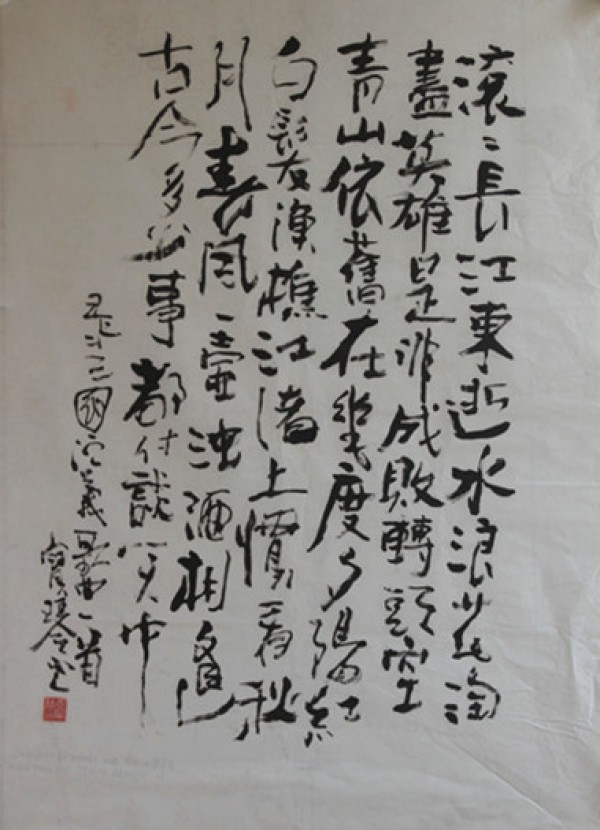 滚〻長江東逝水浪花淘
盡英雄是非成敗轉頭空
青山依舊在幾度夕陽紅
白髮漁樵江渚上慣看秋
月春風一壺濁酒相逢
古今多少事都付談笑中
三國演義 一首